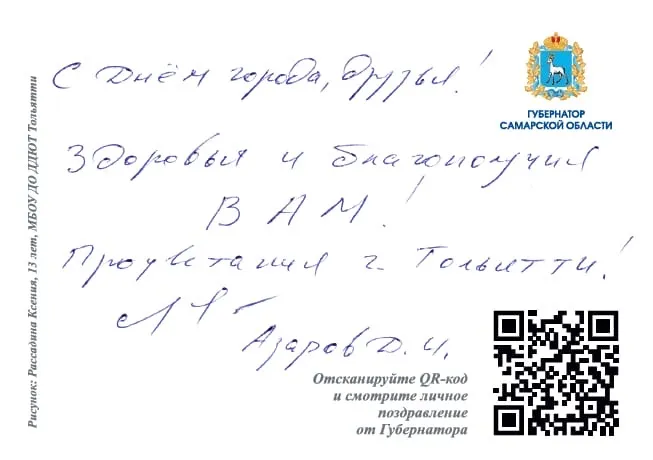 С Днём города, друзья!
ГУБЕРНАТОР
САМАРСКОЙ ОБЛАСТИ
Здоровья и благополучия
ВАМ!
Процветания г. Тольятти!
Азаров Д.И.
Отсканируйте QR-код
и смотрите личное
поздравление
от Губернатора
Рисунок: Рассадина Ксения, 13 лет, МБОУ ДО ДДЮТ Тольятти